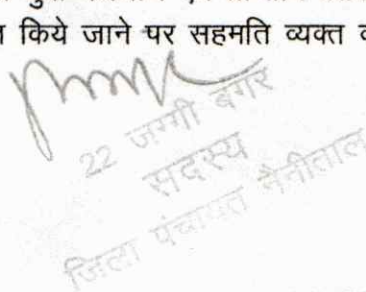 किये जाने पर सहमति व्यक्त
22 जग्गी बंगर
सदस्य
जिला पंचायत नैनीताल